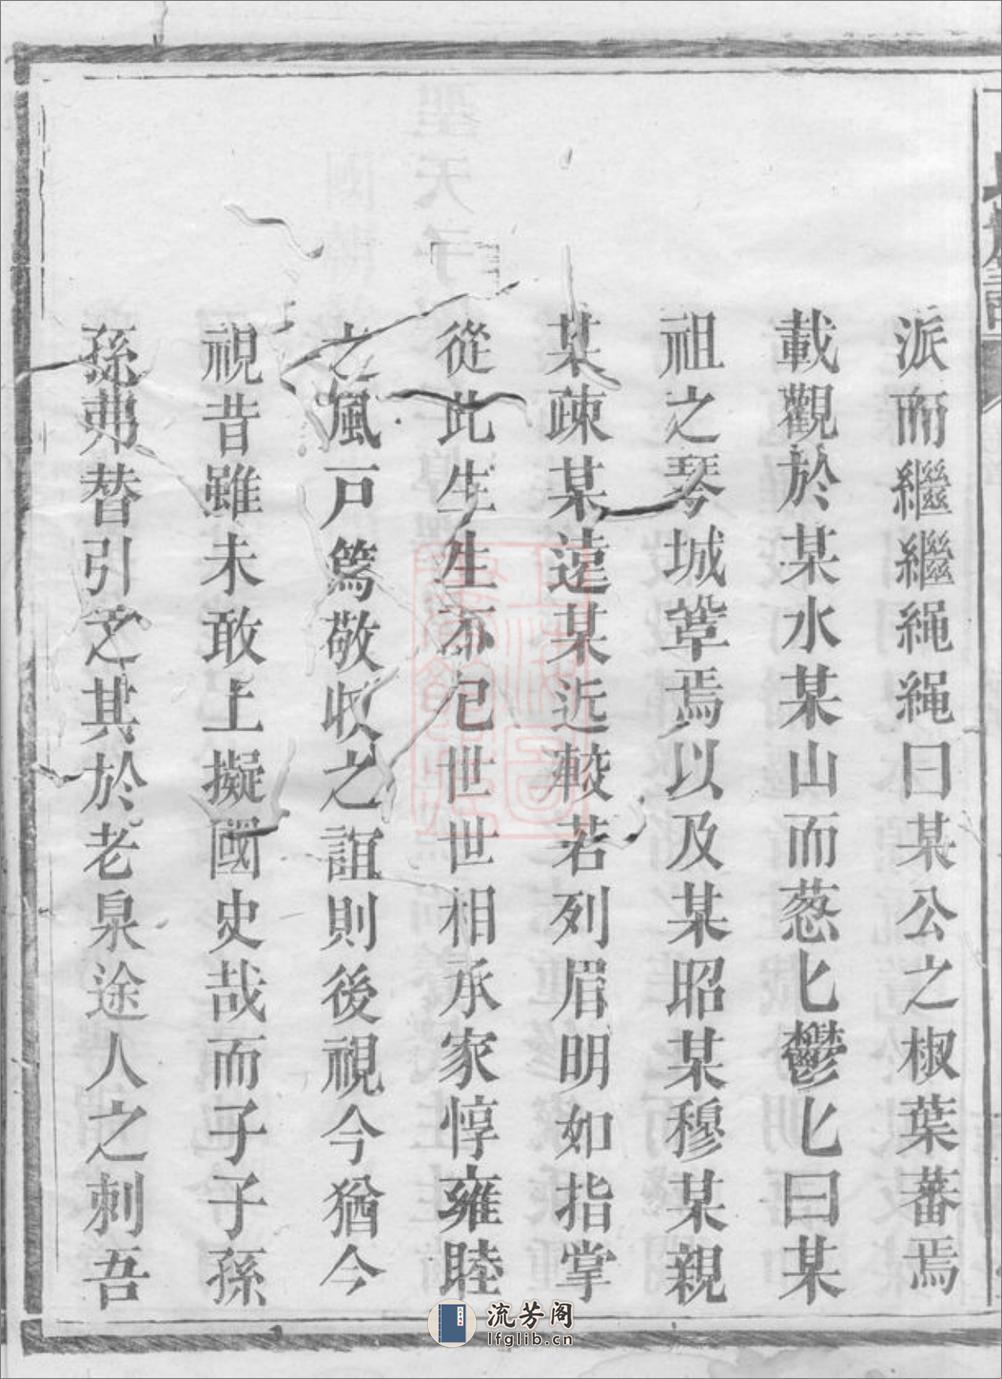 派而繼繼繩繩曰某公之椒葉蕃焉
載觀於某水某山而葱匕鬱匕曰某
祖之琴城鞏焉以及某昭某穆某親
某疎某遠某近較若列眉明如指掌
從此生生不已世世相承家惇雍睦
之風戸篤敬收之誼則後視今猶今
視昔雖未敢上擬國史哉而子子孫
孫弗替引之其於老泉途人之刺吾
流芳阁
lfglib.cn